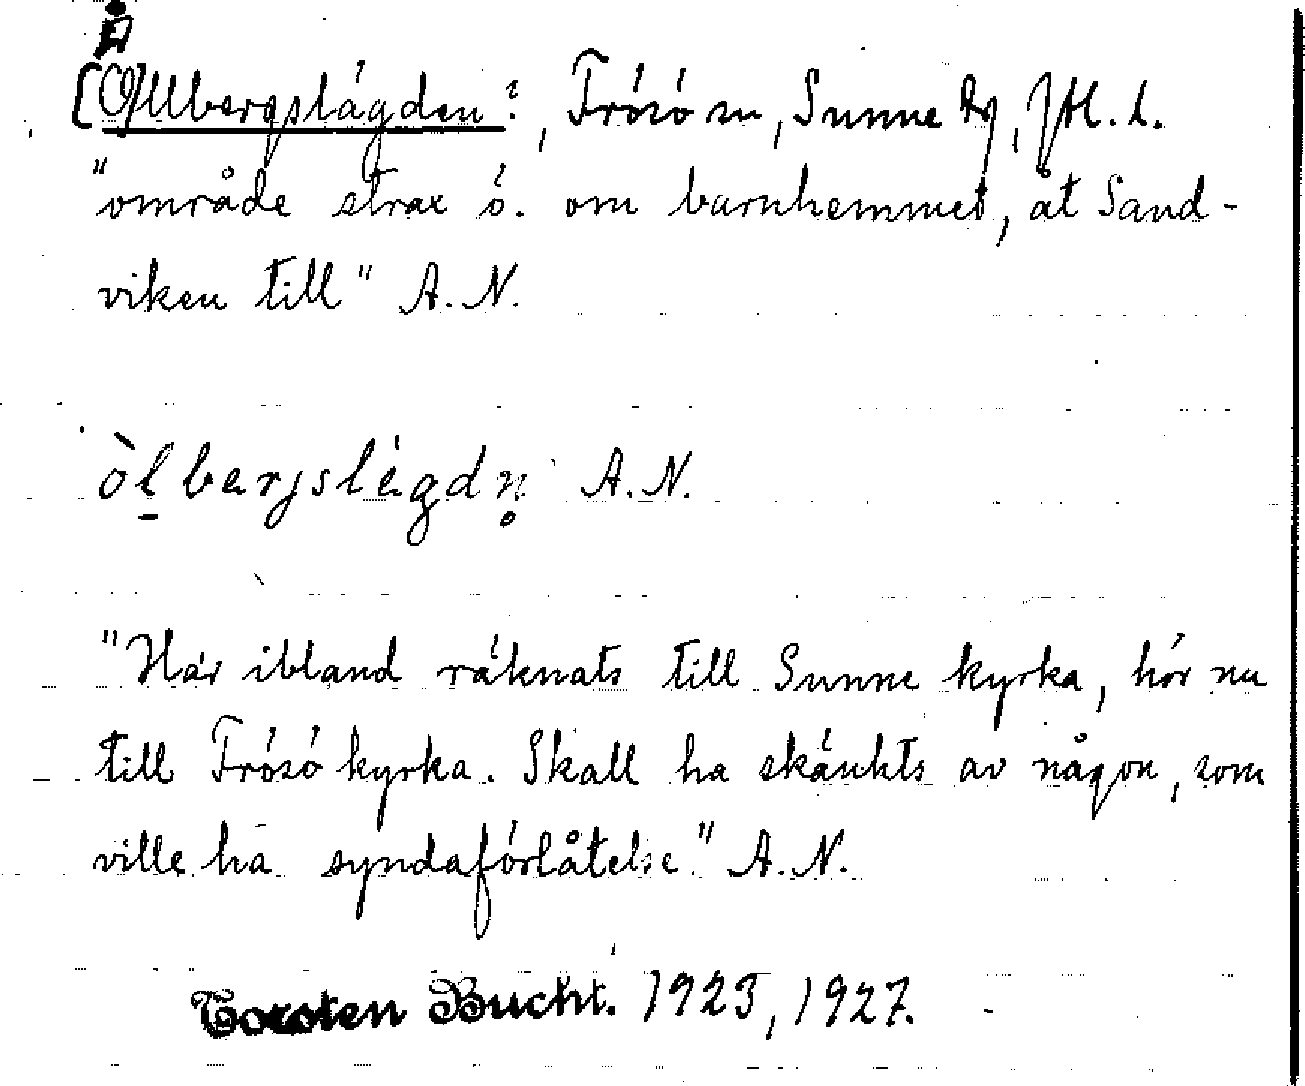 Å
[Ollbergslägden:, Frösö sn, Sunne tg, Jtl. l.
"område strax ö. om barnhemmet, åt Sand-
viken till" A.N.
òl̠ berjslègdn̥ A.N.
"Har ibland räknats till Sunne kyrka, hör nu
till Frösö kyrka. Skall ha skänkts av någon, som
ville ha syndaförlåtelse." A.N.
Torsten Bucht. 1925, 1927.